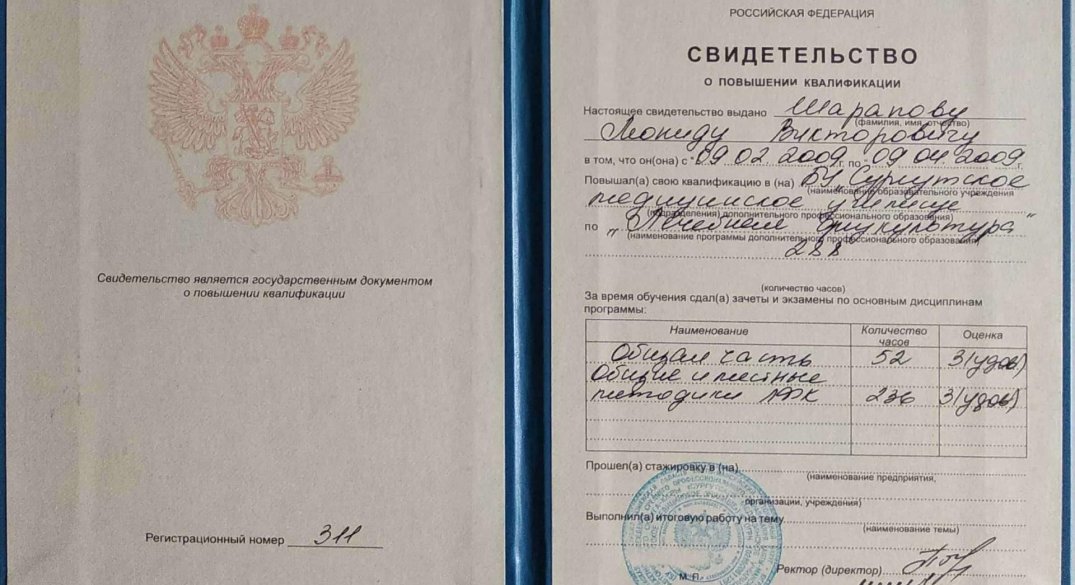 Свидетельство является государственным документом
о повышении квалификации
Регистрационный номер 311
РОССИЙСКАЯ ФЕДЕРАЦИЯ
СВИДЕТЕЛЬСТВО
О ПОВЫШЕНИИ КВАЛИФИКАЦИИ
Настоящее свидетельство выдано Шарапову
(фамилия, имя, отчество)
Леониду Викторовичу
в том, что он(она) с 09 02 2009 г. по 09 04 2009
Повышал(а) свою квалификацию в (на) БУ "Сургутское
(наименование образовательного учреждения
медицинское училище"
(подразделения) дополнительного профессионального образования)
по "Лечебная физкультура"
(наименование программы дополнительного профессионального образования)
288
(количество часов)
За время обучения сдал(а) зачеты и экзамены по основным дисциплинам
программы:
Наименование Количество часов Оценка
Общая часть 52 3(удов)
Общие и местные
методики ЛФК 236 3(удов)
Прошел(а) стажировку в (на)
(наименование предприятия,
организации, учреждения)
Выполнил(а) итоговую работу на тему
(наименование темы)
М.П.
Ректор (директор)